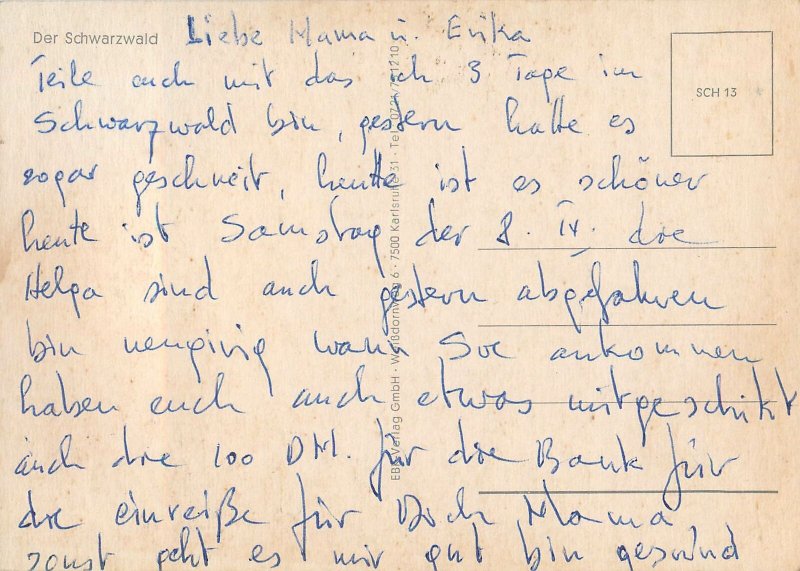 Der Schwarzwald
Liebe Mama u. Erika
Teile euch mit das ich 3 Tage im
Schwarzwald bin, gestern hatte es
sogar geschneit, heute ist es schöner
heute ist Samstag der 8. IV. die
Helga sind auch gestern abgefahren
bin neugirig wann Sie ankommen
haben euch auch etwas mitgeschikt
auch die 100 DM. für die Bank für
die einreiße für Dich Mama
sonst geht es mir gut bin gesund
SCH 13
EBS Verlag GmbH · Weißdornweg 6 · 7500 Karlsruhe 31 · Tel.